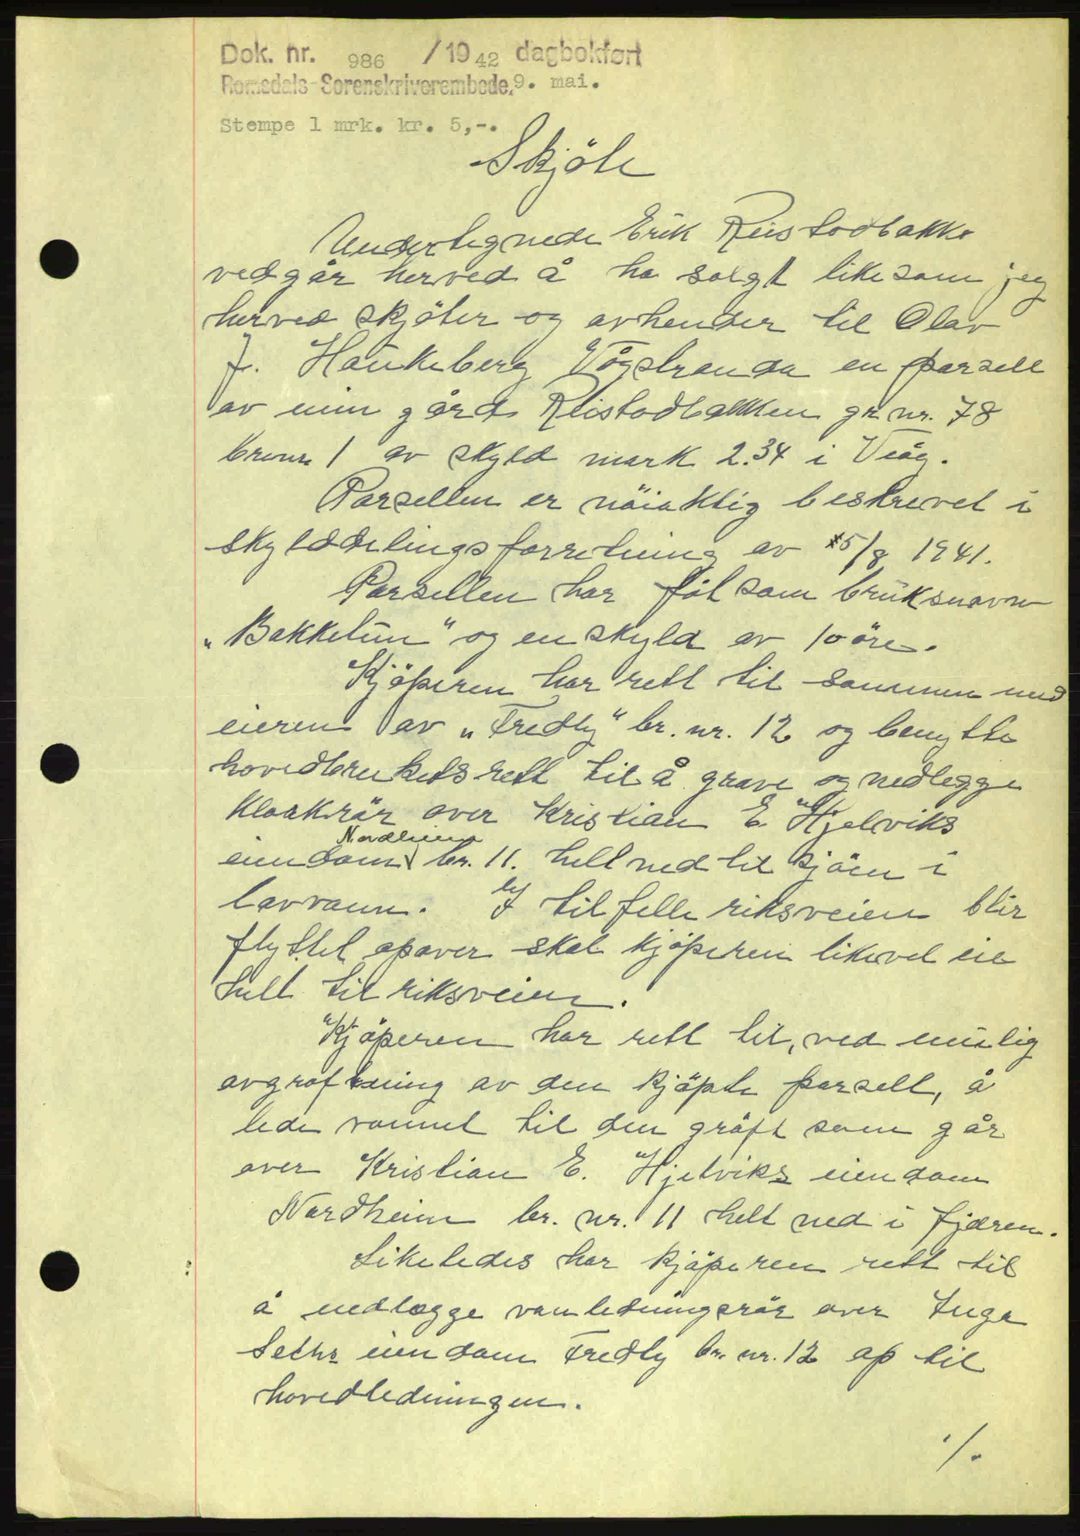 Dok. nr. 986 /19 42 dagbokført
Romsdals Sorenskriverembede, 9. mai.
Stempe l mrk. kr. 5,-.
Skjöte
Undertegnede Erik Reistadbakke
vedgår herved å ha solgt likesom jeg
herved skjöter og avhender til Olav
J. Haukeberg Vågstranda en parsell
av min gård Reistadbakken gr. nr. 78
br.nr. 1 av skyld mark 2.34 i Veöy.
Parsellen er nöiaktig beskrevet i
skylddelingsforretning av 5/8 1941.
Parsellen har fåt som bruksnavn
"Bakketun" og en skyld av 10 öre.
Kjöperen har rett til sammen med
eieren av "Fredly" br. nr. 12 og benytte
hovedbrukets rett til å grave og nedlegge
kloakrör over Kristian E. Hjelviks
eiendom Nordheim br. 11. helt ned til sjöen i
lavvann. I tilfelle riksveien blir
flyttet opover skal kjöperen likevel eie
helt til riksveien.
Kjöperen har rett til, ved mulig
avgröftning av den kjöpte parsell, å
lede vannet til den gröft som går
over Kristian E. Hjelviks eiendom
Nordheim br. nr. 11 helt ned i fjæren.
Likeledes har kjöperen rett til
å nedlegge vannledningsrör over Inga
Setrs eiendom Fredly br. nr. 12 op til
hovedledningen.
./.